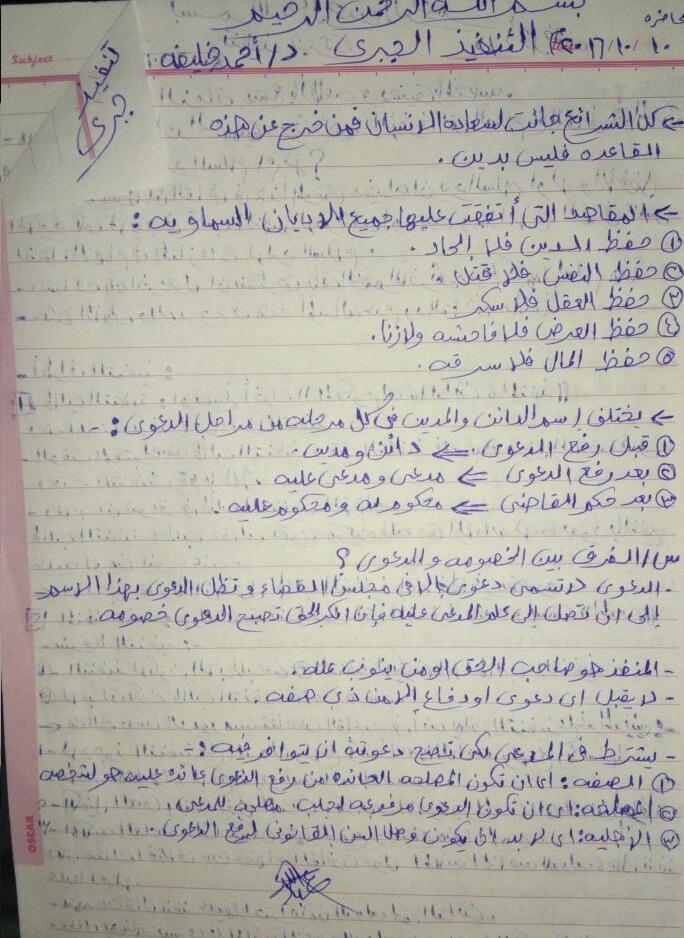 بسم الله الرحمن الرحيم
محاضره
١٠/١٠/٢٠١٦ التنفيذ الجبرى د/أحمد خليفه
Subject
تنفيذ جبرى
← كل الشرائع جائت لسعادة الانسان فمن خرج عن هذه
القاعده فليس بدين .
← المقاصد التى أتفقت عليها جميع الاديان السماويه :
① حفظ الدين فلا إلحاد .
② حفظ النفس فلا قتل
③ حفظ العقل فلا سكر
④ حفظ العرض فلا فاحشه ولا زنا .
⑤ حفظ المال فلا سرقه .
← يختلف إسم الدائن والمدين فى كل مرحله من مراحل الدعوى : -
① قبل رفع الدعوى ← دائن و مدين .
② بعد رفع الدعوى ← مدعى و مدعى عليه .
③ بعد حكم القاضى ← محكوم له و محكوم عليه .
س/ الفرق بين الخصومه و الدعوى ؟
- الدعوى لا تسمى دعوى إلا فى مجلس القضاء و تظل الدعوى بهذا الاسم
إلى ان تصل إلى علم المدعى عليه فإن انكر الحق تصبح الدعوى خصومه .
- المنفذ هو صاحب الحق او من ينوب عنه .
- لا يقبل اى دعوى او دفاع الا من ذي صفه .
- يشترط فى المدعي لكى تصح دعوته ان يتوافر فيه : -
① الصفه : اى ان تكون المصلحه العائده من رفع الدعوى عائده عليه هو لشخصه
② المصلحه : اى ان تكون الدعوى مرفوعه لجلب مصلحه للمدعى .
③ الأهليه : اى لا بد ان يكون وصل السن القانونى لرفع الدعوى .
OSCAR